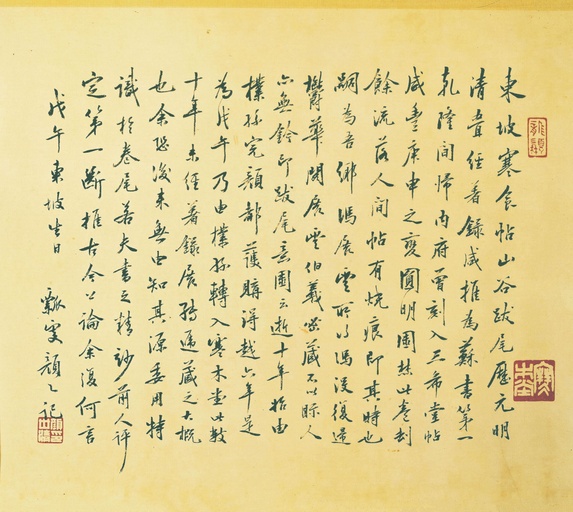 東坡寒食帖山谷跋尾歷元明
清疊經著錄咸推為蘇書第一
乾隆間歸內府曾刻入三希堂帖
咸豐庚申之變圓明園焚此卷劫
餘流落人間帖有燒痕即其時也
嗣為吾鄉馮展雲所得馮沒復
鬱華閣展雲伯羲密藏不以眎人
亦無鈐印跋尾意園云逝十年始由
樸孫完顏都護購得越六年是
為戊午乃由樸孫轉入寒木堂此數
十年未經著錄展轉遞藏之大概
也余恐後來無由知其源委用特
識於卷尾若夫書之精妙前人評
定第一斷推古今公論余復何言
戊午東坡生日 瓢叟顏記
寒木堂